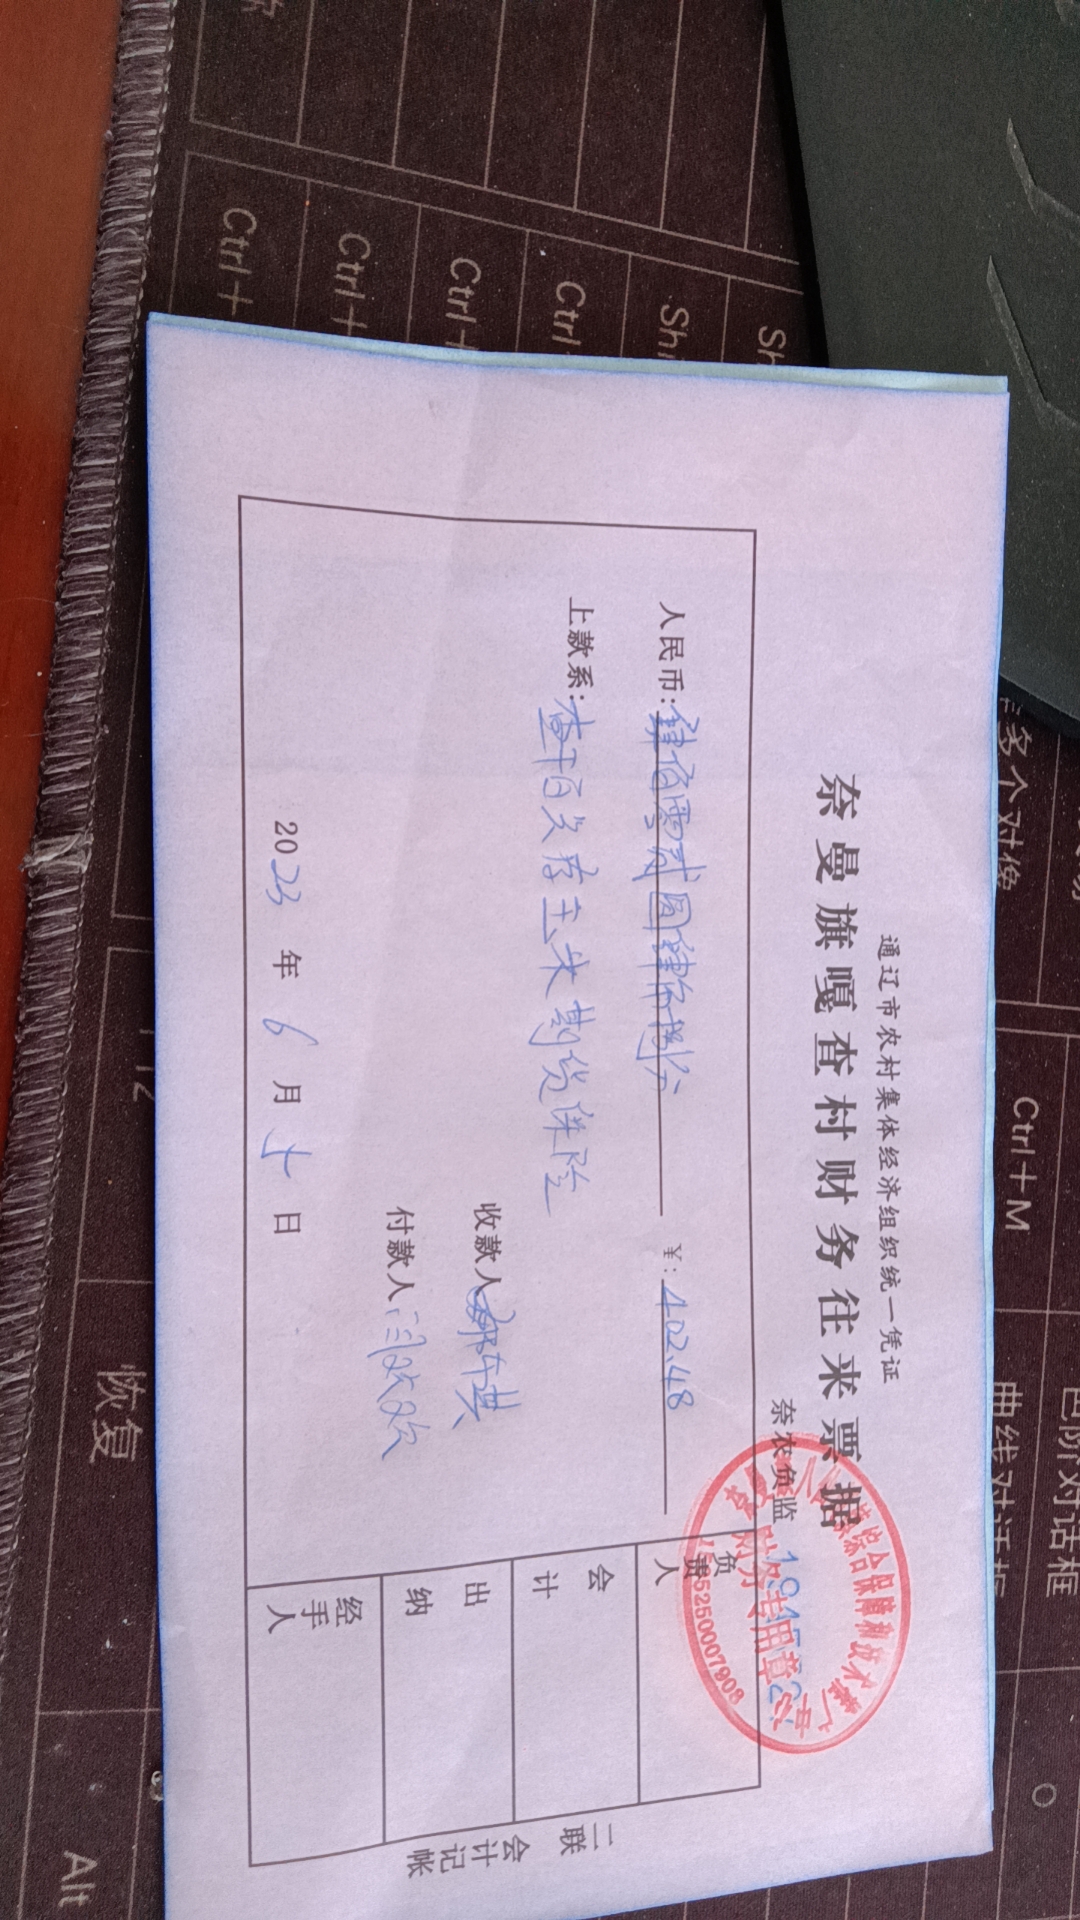 通辽市农村集体经济组织统一凭证
奈曼旗嘎查村财务往来票据
奈农负监
人民币:肆佰零贰圆肆角捌分 ¥:402.48
上款系:查干百兴存玉米期货保险
收款人
付款人:
2023年6月十日
负责人
会计
出纳
经手人
二联 会计记帐
综合保障和技术推广
财务专用章
5250007908
Ctrl+
Ctrl+
Ctrl+
Ctrl
Shi
Sh
多个对像
Ctrl+M
曲线对话框
色阶对话框
恢复
Alt